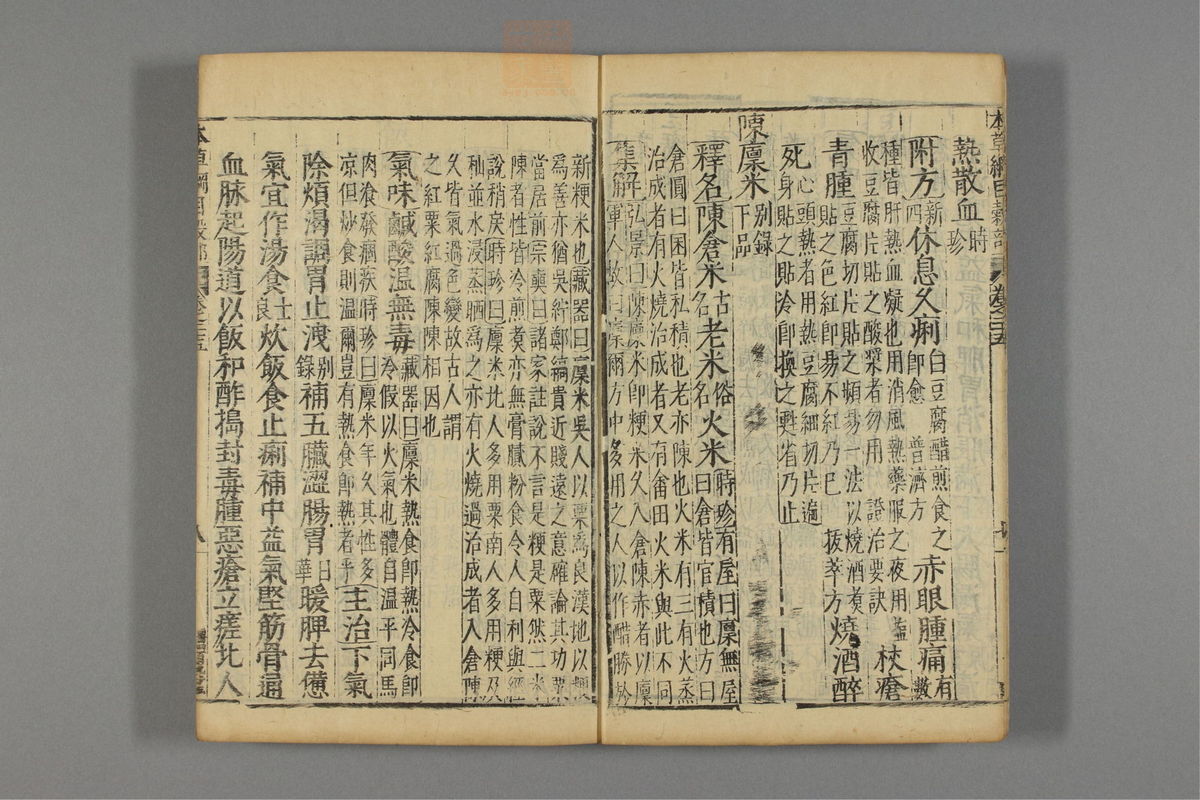 熱散血時珍
附方新四休息久痢白豆腐醋煎食之即愈普濟方赤眼腫痛有數
種皆肝熱血凝也用消風熱藥服之夜用鹽
收豆腐片貼之酸漿者勿用證治要訣杖瘡
青腫豆腐切片貼之頻易一法以燒酒煮
貼之色紅即易不紅乃已拔萃方燒酒醉
死心頭熱者用熱豆腐細切片遍
身貼之貼冷即換之甦省乃止
陳廩米別錄下品
釋名陳倉米古名老米俗名火米時珍曰有屋曰廩無屋
曰倉皆官積也方曰
倉圓曰囷皆私積也老亦陳也火米有三有火蒸
治成者有火燒治成者又有畬田火米與此不同
集解弘景曰陳廩米即粳米久入倉陳赤者以廩
軍人故曰廩爾方中多用之人以作醋勝於
新粳米也藏器曰廩米吳人以粟為良漢地以粳
為善亦猶吳紵鄭縞貴近賤遠之意確論其功粟
當居前宗奭曰諸家註說不言是粳是粟然二米
陳者性皆冷煎煮亦無膏膩粉食令人自利與經
說稍戾時珍曰廩米北人多用粟南人多用粳及
秈並水浸蒸晒為之亦有火燒過治成者入倉陳
久皆氣過色變故古人謂
之紅粟紅腐陳陳相因也
氣味鹹酸温無毒藏器曰廩米熱食即熱冷食即
冷假以火氣也體自温平同馬
肉食發痼疾時珍曰廩米年久其性多
凉但炒食則温爾豈有熱食即熱者乎主治下氣
除煩渴調胃止洩別錄補五臟澀腸胃日華暖脾去憊
氣宜作湯食士良炊飯食止痢補中益氣堅筋骨通
血脉起陽道以飯和酢搗封毒腫惡瘡立瘥北人